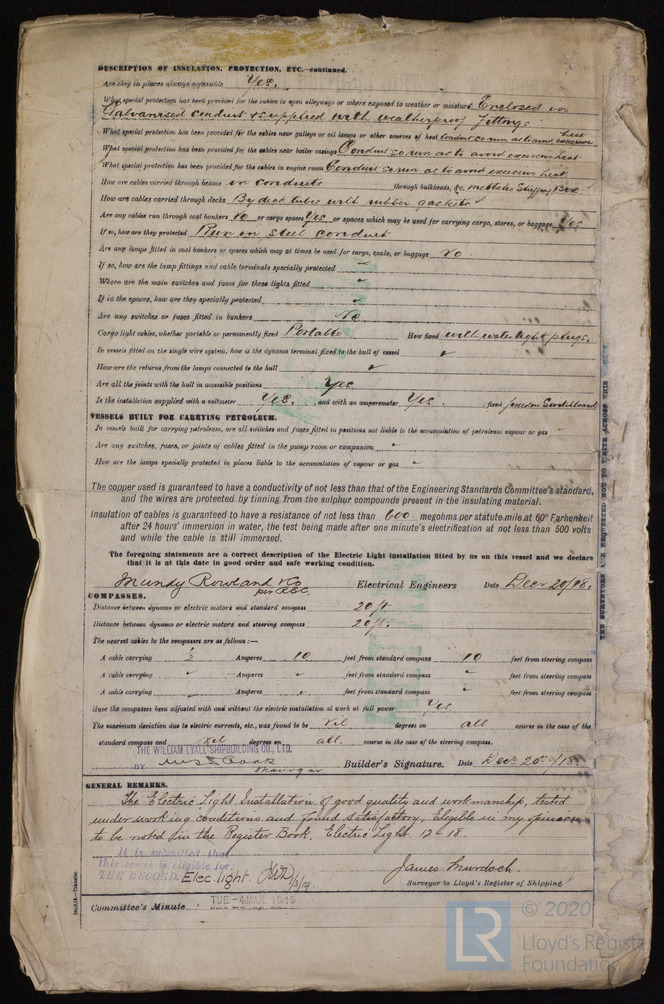 DESCRIPTION OF INSULATION, PROTECTION, ETC.—continued.
Are they in places always accessible Yes.
What special protection has been provided for the cables in open alleyways or where exposed to weather or moisture Enclosed in
Galvanised conduit & supplied with weatherproof fittings
What special protection has been provided for the cables near galleys or oil lamps or other sources of heat Conduit so run as to avoid excessive heat
What special protection has been provided for the cables near boiler casings Conduit so run as to avoid excessive heat
What special protection has been provided for the cables in engine room Conduit so run as to avoid excessive heat
How are cables carried through beams in conduits through bulkheads, &c. metallic Stuffing Box
How are cables carried through decks By deck tube with rubber gaskets
Are any cables run through coal bunkers No or cargo spaces Yes or spaces which may be used for carrying cargo, stores, or baggage Yes
If so, how are they protected Run in steel conduit
Are any lamps fitted in coal bunkers or spaces which may at times be used for cargo, coals, or baggage No
If so, how are the lamp fittings and cable terminals specially protected ✓
Where are the main switches and fuses for these lights fitted ✓
If in the spaces, how are they specially protected ✓
Are any switches or fuses fitted in bunkers No
Cargo light cables, whether portable or permanently fixed Portable How fixed with watertight plugs.
In vessels fitted on the single wire system, how is the dynamo terminal fixed to the hull of vessel ✓
How are the returns from the lamps connected to the hull ✓
Are all the joints with the hull in accessible positions Yes
Is the installation supplied with a voltmeter Yes. and with an amperemeter Yes. fixed on Switchboard
VESSELS BUILT FOR CARRYING PETROLEUM.
In vessels built for carrying petroleum, are all switches and fuses fitted in positions not liable to the accumulation of petroleum vapour or gas
Are any switches, fuses, or joints of cables fitted in the pump room or companion
How are the lamps specially protected in places liable to the accumulation of vapour or gas
The copper used is guaranteed to have a conductivity of not less than that of the Engineering Standards Committee's standard,
and the wires are protected by tinning from the sulphur compounds present in the insulating material.
Insulation of cables is guaranteed to have a resistance of not less than 600 megohms per statute mile at 60° Farhenheit
after 24 hours' immersion in water, the test being made after one minute's electrification at not less than 500 volts
and while the cable is still immersed.
The foregoing statements are a correct description of the Electric Light installation fitted by us on this vessel and we declare
that it is at this date in good order and safe working condition.
Mundy Rowland & Co Electrical Engineers Date Dec 20/18.
COMPASSES.
Distance between dynamo or electric motors and standard compass 20 ft
Distance between dynamo or electric motors and steering compass 20 ft.
The nearest cables to the compasses are as follows:—
A cable carrying ½ Amperes 10 feet from standard compass 10 feet from steering compass
A cable carrying ✓ Amperes ✓ feet from standard compass ✓ feet from steering compass
A cable carrying ✓ Amperes ✓ feet from standard compass ✓ feet from steering compass
Have the compasses been adjusted with and without the electric installation at work at full power Yes
The maximum deviation due to electric currents, etc., was found to be Nil degrees on all course in the case of the
standard compass and Nil degrees on all. course in the case of the steering compass.
THE WILLIAM LYALL SHIPBUILDING CO., LTD.
BY Manager Builder's Signature. Date Dec 20th/18
GENERAL REMARKS.
The Electric Light Installation of good quality and workmanship, tested
under working conditions and found satisfactory, Eligible in my opinion
to be noted in the Register Book. Electric Light 12-18.
It is submitted that
this vessel is eligible for
THE RECORD. Elec. light
James Murdoch.
Surveyor to Lloyd's Register of Shipping.
Committee's Minute TUE-4 MAR. 1919
THE SURVEYORS ARE REQUESTED NOT TO WRITE ACROSS THIS
LR
© 2020
Lloyd's Register
Foundation